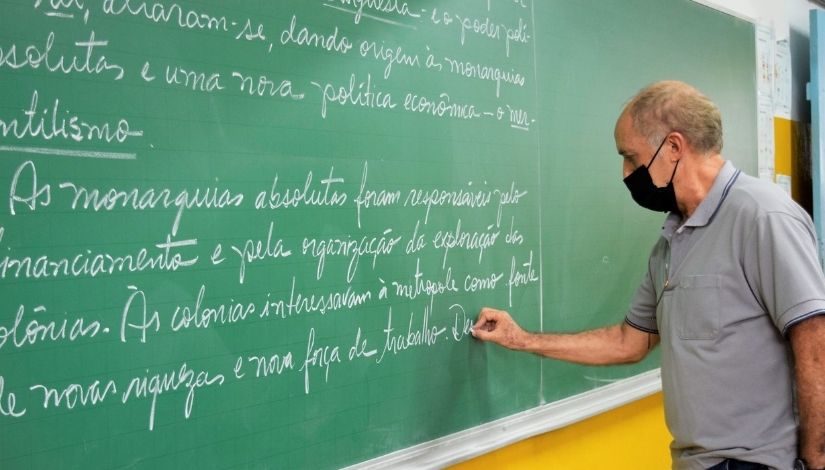 aliaram-se, dando origem às monarquias
solutas e uma nova política econômica - o mer-
ntilismo.
As monarquias absolutas foram responsáveis pelo
inanciamento e pela organização da exploração das
olônias. As colonias interessavam à metropole como fonte
de novas riquezas e nova força de trabalho. Du